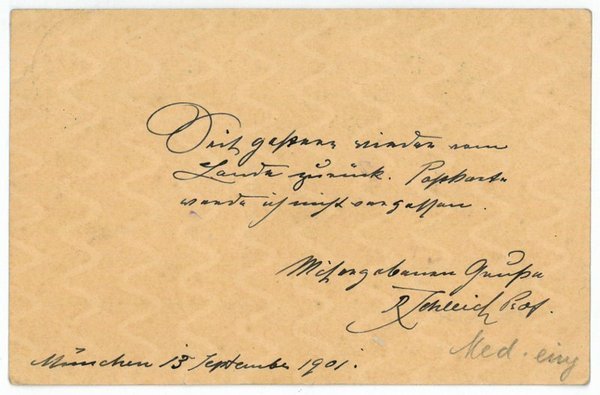 Seit gestern wieder vom
Lande zurück. Postkarte
werde ich nicht vergessen.
Mit ergebenen Gruße
R Schleich Prof.
München 13 September 1901.
Med.